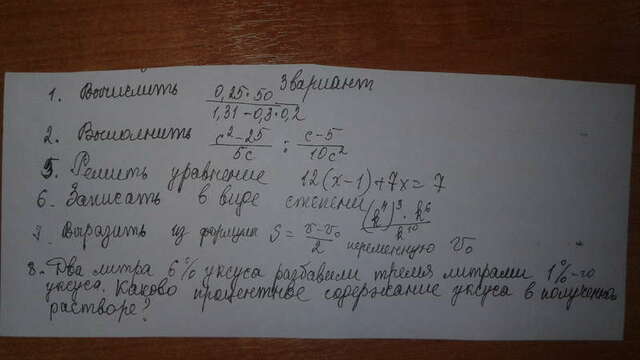 3 вариант
1. Вычислить 0,25·50 / 1,31-0,3·0,2
2. Выполнить c²-25 / 5c : c-5 / 10c²
5. Решить уравнение 12(x-1)+7x=7
6. Записать в виде степени (k⁴)³·k⁶ / k¹⁰
7. Выразить из формулы S = v-v₀ / 2 переменную v₀
8. Два литра 6% уксуса разбавили тремя литрами 1%-го
уксуса. Каково процентное содержание уксуса в полученном
растворе?